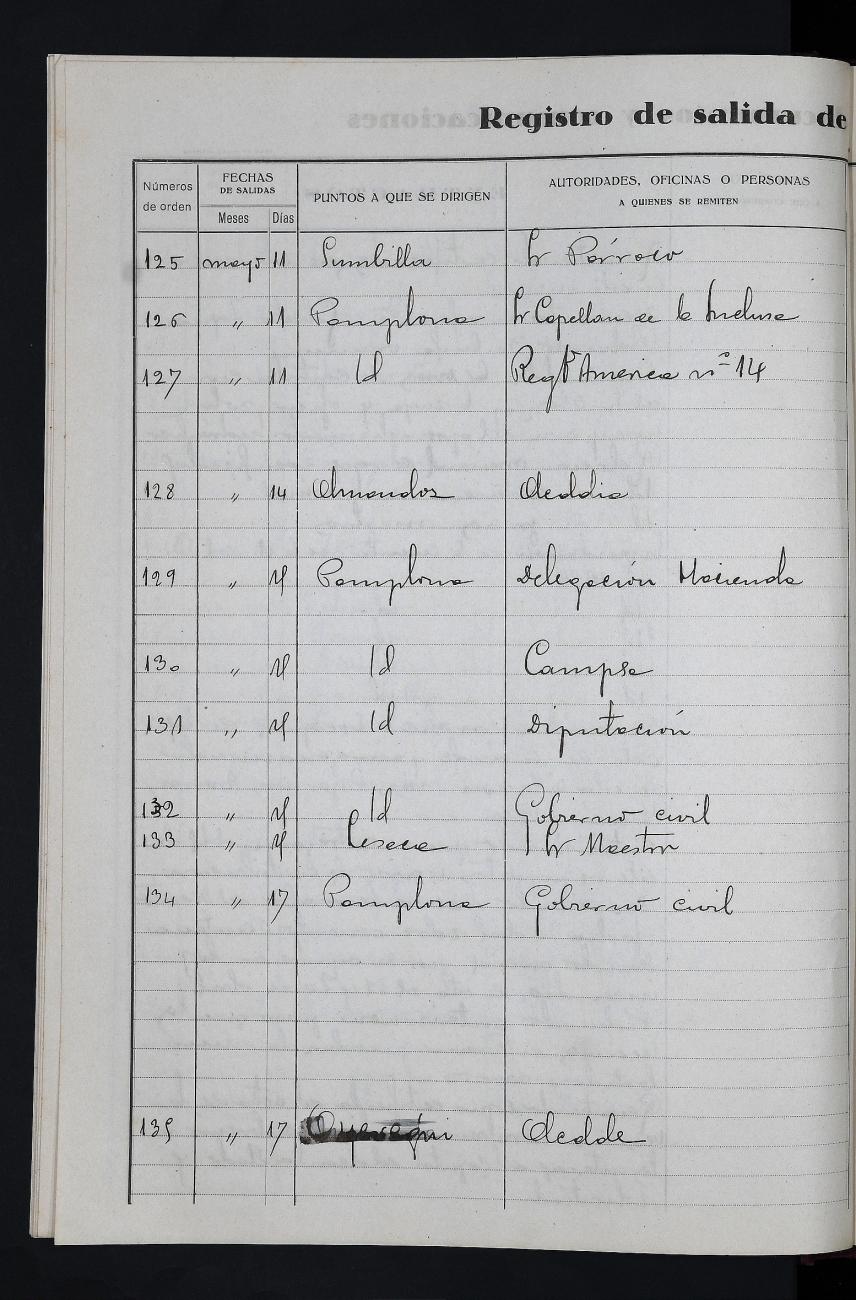 Registro de salida de
Números de orden
FECHAS DE SALIDAS
Meses Días
PUNTOS A QUE SE DIRIGEN
AUTORIDADES, OFICINAS O PERSONAS
A QUIENES SE REMITEN
125 mayo 11 Sumbilla Sr Párroco
126 " 11 Pamplona Sr Capellan de la Inclusa
127 " 11 Id Regto America nº 14
128 " 14 Almandoz Alcaldia
129 " 14 Pamplona Delegación Hacienda
130 " 14 Id Campsa
131 " 14 Id Diputación
132 " 14 Id Gobierno civil
133 " 14 Lesaca Sr Maestro
134 " 17 Pamplona Gobierno civil
135 " 17 Alcalde